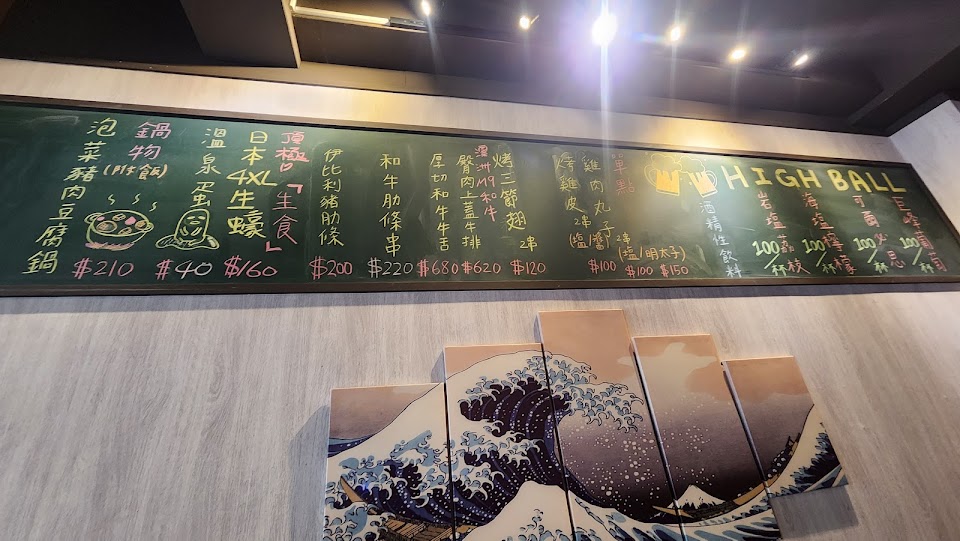 HIGH BALL
酒精性飲料
巨峰葡萄
100/杯
可爾必思
100/杯
海塩檸檬
100/杯
岩塩荔枝
100/杯
單點
雞肉丸子
2串
(塩/明太子)
$100 $150
烤雞皮
2串
(塩/醬)
$100
烤三節翅
2串
$120
澳洲M9和牛
臀肉上蓋牛排
$620
厚切和牛牛舌
$680
和牛肋條串
$220
伊比利豬肋條
$200
頂極「生食」
日本4XL生蠔
$160
溫泉蛋
$40
鍋物
(附飯)
泡菜豬肉豆腐鍋
$210